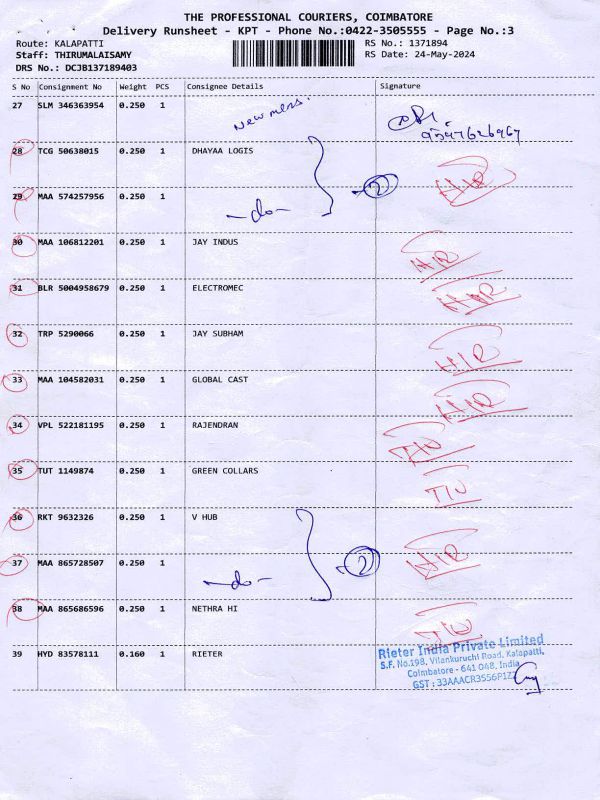 THE PROFESSIONAL COURIERS, COIMBATORE
Delivery Runsheet - KPT - Phone No.:0422-3505555 - Page No.:3
Route: KALAPATTI
RS No.: 1371894
Staff: THIRUMALAISAMY
RS Date: 24-May-2024
DRS No.: DCJB137189403
S No Consignment No Weight PCS Consignee Details Signature
27 SLM 346363954 0.250 1
9547626967
28 TCG 50638015 0.250 1 DHAYAA LOGIS
29 MAA 574257956 0.250 1 -do- 2 H/R
30 MAA 106812201 0.250 1 JAY INDUS H/R
31 BLR 5004958679 0.250 1 ELECTROMEC H/R
32 TRP 5290066 0.250 1 JAY SUBHAM H/R
33 MAA 104582031 0.250 1 GLOBAL CAST H/R
34 VPL 522181195 0.250 1 RAJENDRAN
35 TUT 1149874 0.250 1 GREEN COLLARS
36 RKT 9632326 0.250 1 V HUB
37 MAA 865728507 0.250 1 -do- 2 H/R
38 MAA 865686596 0.250 1 NETHRA HI
39 HYD 83578111 0.160 1 RIETER
Rieter India Private Limited
S.F. No.198, Vilankuruchi Road, Kalapatti,
Coimbatore - 641 048, India
GST : 33AAACR3556P1ZZ